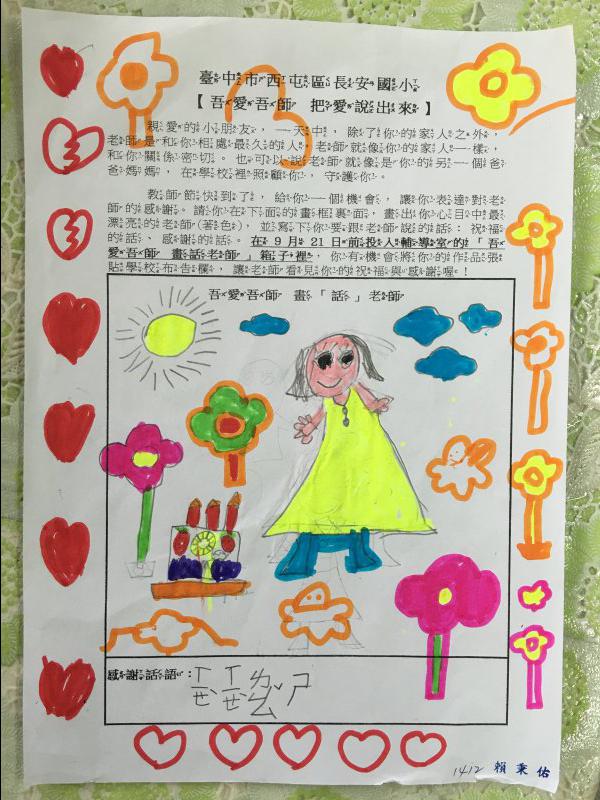 臺中市西屯區長安國小
【吾愛吾師 把愛說出來】
親愛的小朋友,一天中,除了你的家人之外,
老師是和你相處最久的人,老師就像你的家人一樣,
和你關係密切。也可以說老師就像是你的另一個爸
爸媽媽,在學校裡照顧你,守護你。
教師節快到了,給你一個機會,讓你表達對老
師的感謝。請你在下面的畫框裏面,畫出你心目中最
漂亮的老師(著色),並寫下你要跟老師說的話:祝福
的話、感謝的話。在9月21日前投入輔導室的「吾
愛吾師 畫話老師」箱子裡,你有機會將你的作品張
貼學校布告欄,讓老師看見你的祝福與感謝喔!
吾愛吾師 畫「話」老師
感謝話語:ㄒㄧㄝˋㄒㄧㄝˋㄌㄠˇㄕ
1412 賴秉佑